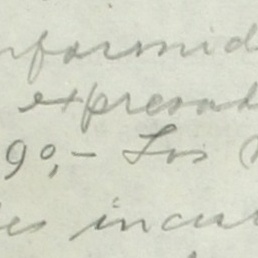 nformid
expresad
9º,- Los
es incul